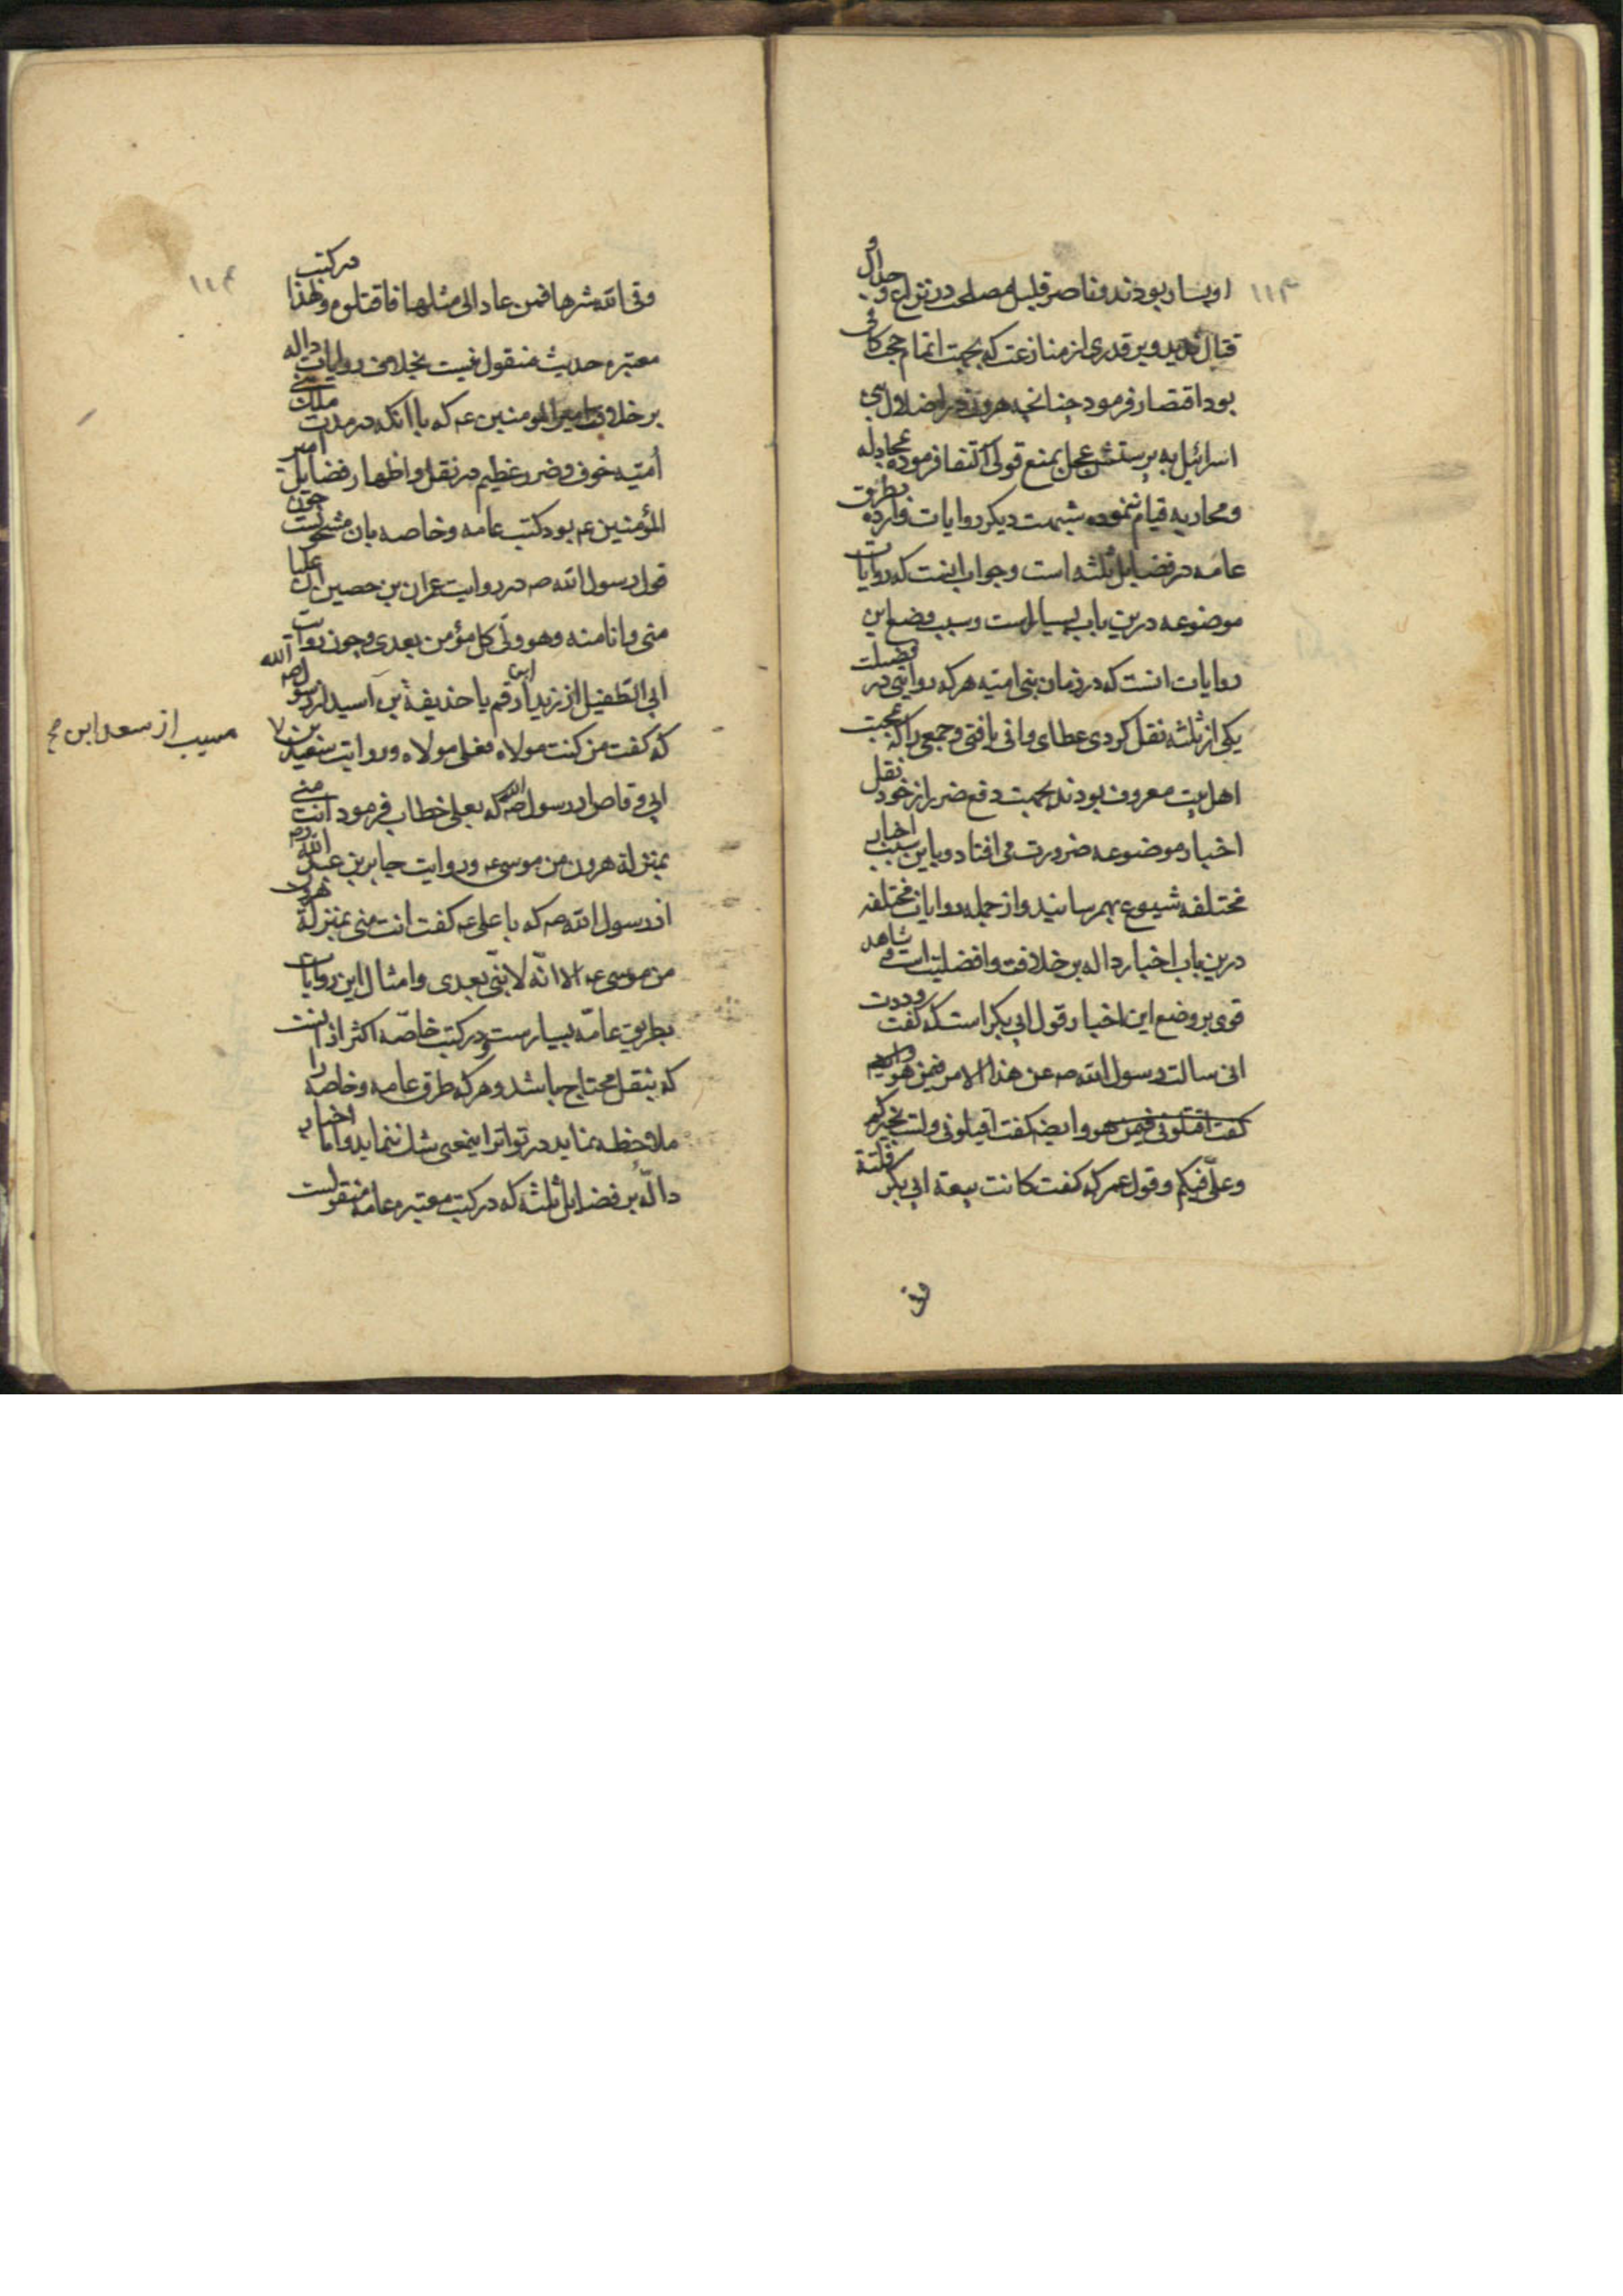 ۱۱۳
او بسیار بودند و ناصر قلیل مصلحت در نزاع و جدال و
قتال ندید و بر قدری از منازعت که بجهت اتمام حجت کافی
بود اقتصار فرمود چنانچه هرون در اضلال بنی
اسرائیل به پرستش عجل بمنع قولی اکتفا فرموده بمجادله
و محاربه قیام ننموده شبهت دیکر روایات وارده بطریق
عامه در فضایل ثلثه است و جواب اینست که روایات
موضوعه درین باب بسیارست و سبب وضع این
روایات انست که در زمان بنی امیه هرکه روایتی در فضیلت
یکی از ثلثه نقل کردی عطای وافی یافتی و جمعی را که بمحبت
اهل بیت معروف بودند بجهت دفع ضرر از خود نقل
اخبار موضوعه ضرورت می افتاد و باین سبب اخبار
مختلفه شیوع بهم رسانید و از جمله روایات مختلفه
درین باب اخبار داله بر خلافت و افضلیت است و شاهد
قوی بر وضع این اخبار قول ابی بکر است که گفت وددت
انی سالت رسول الله صه عن هذا الامر فیمن هو
کفت اقتلونی فیمن هو وایضه کفت اقیلونی ولست بخیرکم
و علی فیکم و قول عمر که کفت کانت بیعة ابی بکر فلتة
وقی
۱۱۴
وقی الله شرها فمن عاد الی مثلها فاقتلوه و لهذا در کتب
معتبره حدیث منقول نیست بخلاف روایات داله
بر خلافت امیر المومنین عه که با انکه در مدت ملک بنی
امیّه خوف و ضرر عظیم در نقل و اظهار فضایل امیر
المؤمنین عه بود کتب عامه و خاصه بان مشحونست چون
قول رسول الله صه در روایت عمران بن حصین ان علیا
منی و انا منه و هو ولی کل مؤمن بعدی و چون روایت
ابی الطفیل از زید ابن ارقم یا حذیفة بن اسید از رسول الله صه
که کفت من کنت مولاه فعلی مولاه و روایت سعید بن
مسیب از سعد ابن صح
ابی وقاص از رسول الله صه که بعلی خطاب فرمود انت منی
بمنزلة هرون من موسی و روایت جابر بن عبد الله
از رسول الله صه که با علی عه کفت انت منی بمنزلة هرون
من موسی عه الا انّه لا نبیّ بعدی و امثال این روایات
بطریق عامّه بسیارست و در کتب خاصّه اکثر از انست
که بنقل محتاج باشد و هرکه طرق عامه و خاصه را
ملاحظه نماید در تواتر اینمعنی شک ننماید و اما اخبار
دالّه بر فضایل ثلثه که در کتب معتبره عامه منقولست